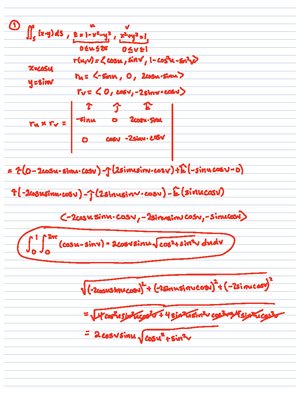 ① ∬ₛ (x-y) dS , z=1-x²-y² , x²+y²=1
u v
0≤u≤2π 0≤v≤1
x=cosu
y=sinv
r(u,v)=⟨cosu, sinv, 1-cos²u-sin²v⟩
ru = ⟨-sinu, 0, 2cosu·sinu⟩
rv = ⟨0, cosv, -2sinv·cosv⟩
î ĵ k̂
ru × rv = -sinu 0 2cosu·sinu
0 cosv -2sinv·cosv
= î(0-2cosu·sinu·cosv)-ĵ(2sinusinv·cosv)+k̂(-sinu·cosv-0)
î(-2cosusinu·cosv)-ĵ(2sinusinv·cosv)-k̂(sinucosv)
⟨-2cosusinu·cosv, -2sinusinvcosv, -sinucosv⟩
∫₀¹∫₀²π (cosu-sinv)·2cosvsinu√cos²+sin²v dudv
√(-2cosusinucosv)²+(-2sinusinvcosv)²+(-2sinucosv)²
= 2cosvsinu√cosu²+sin²v